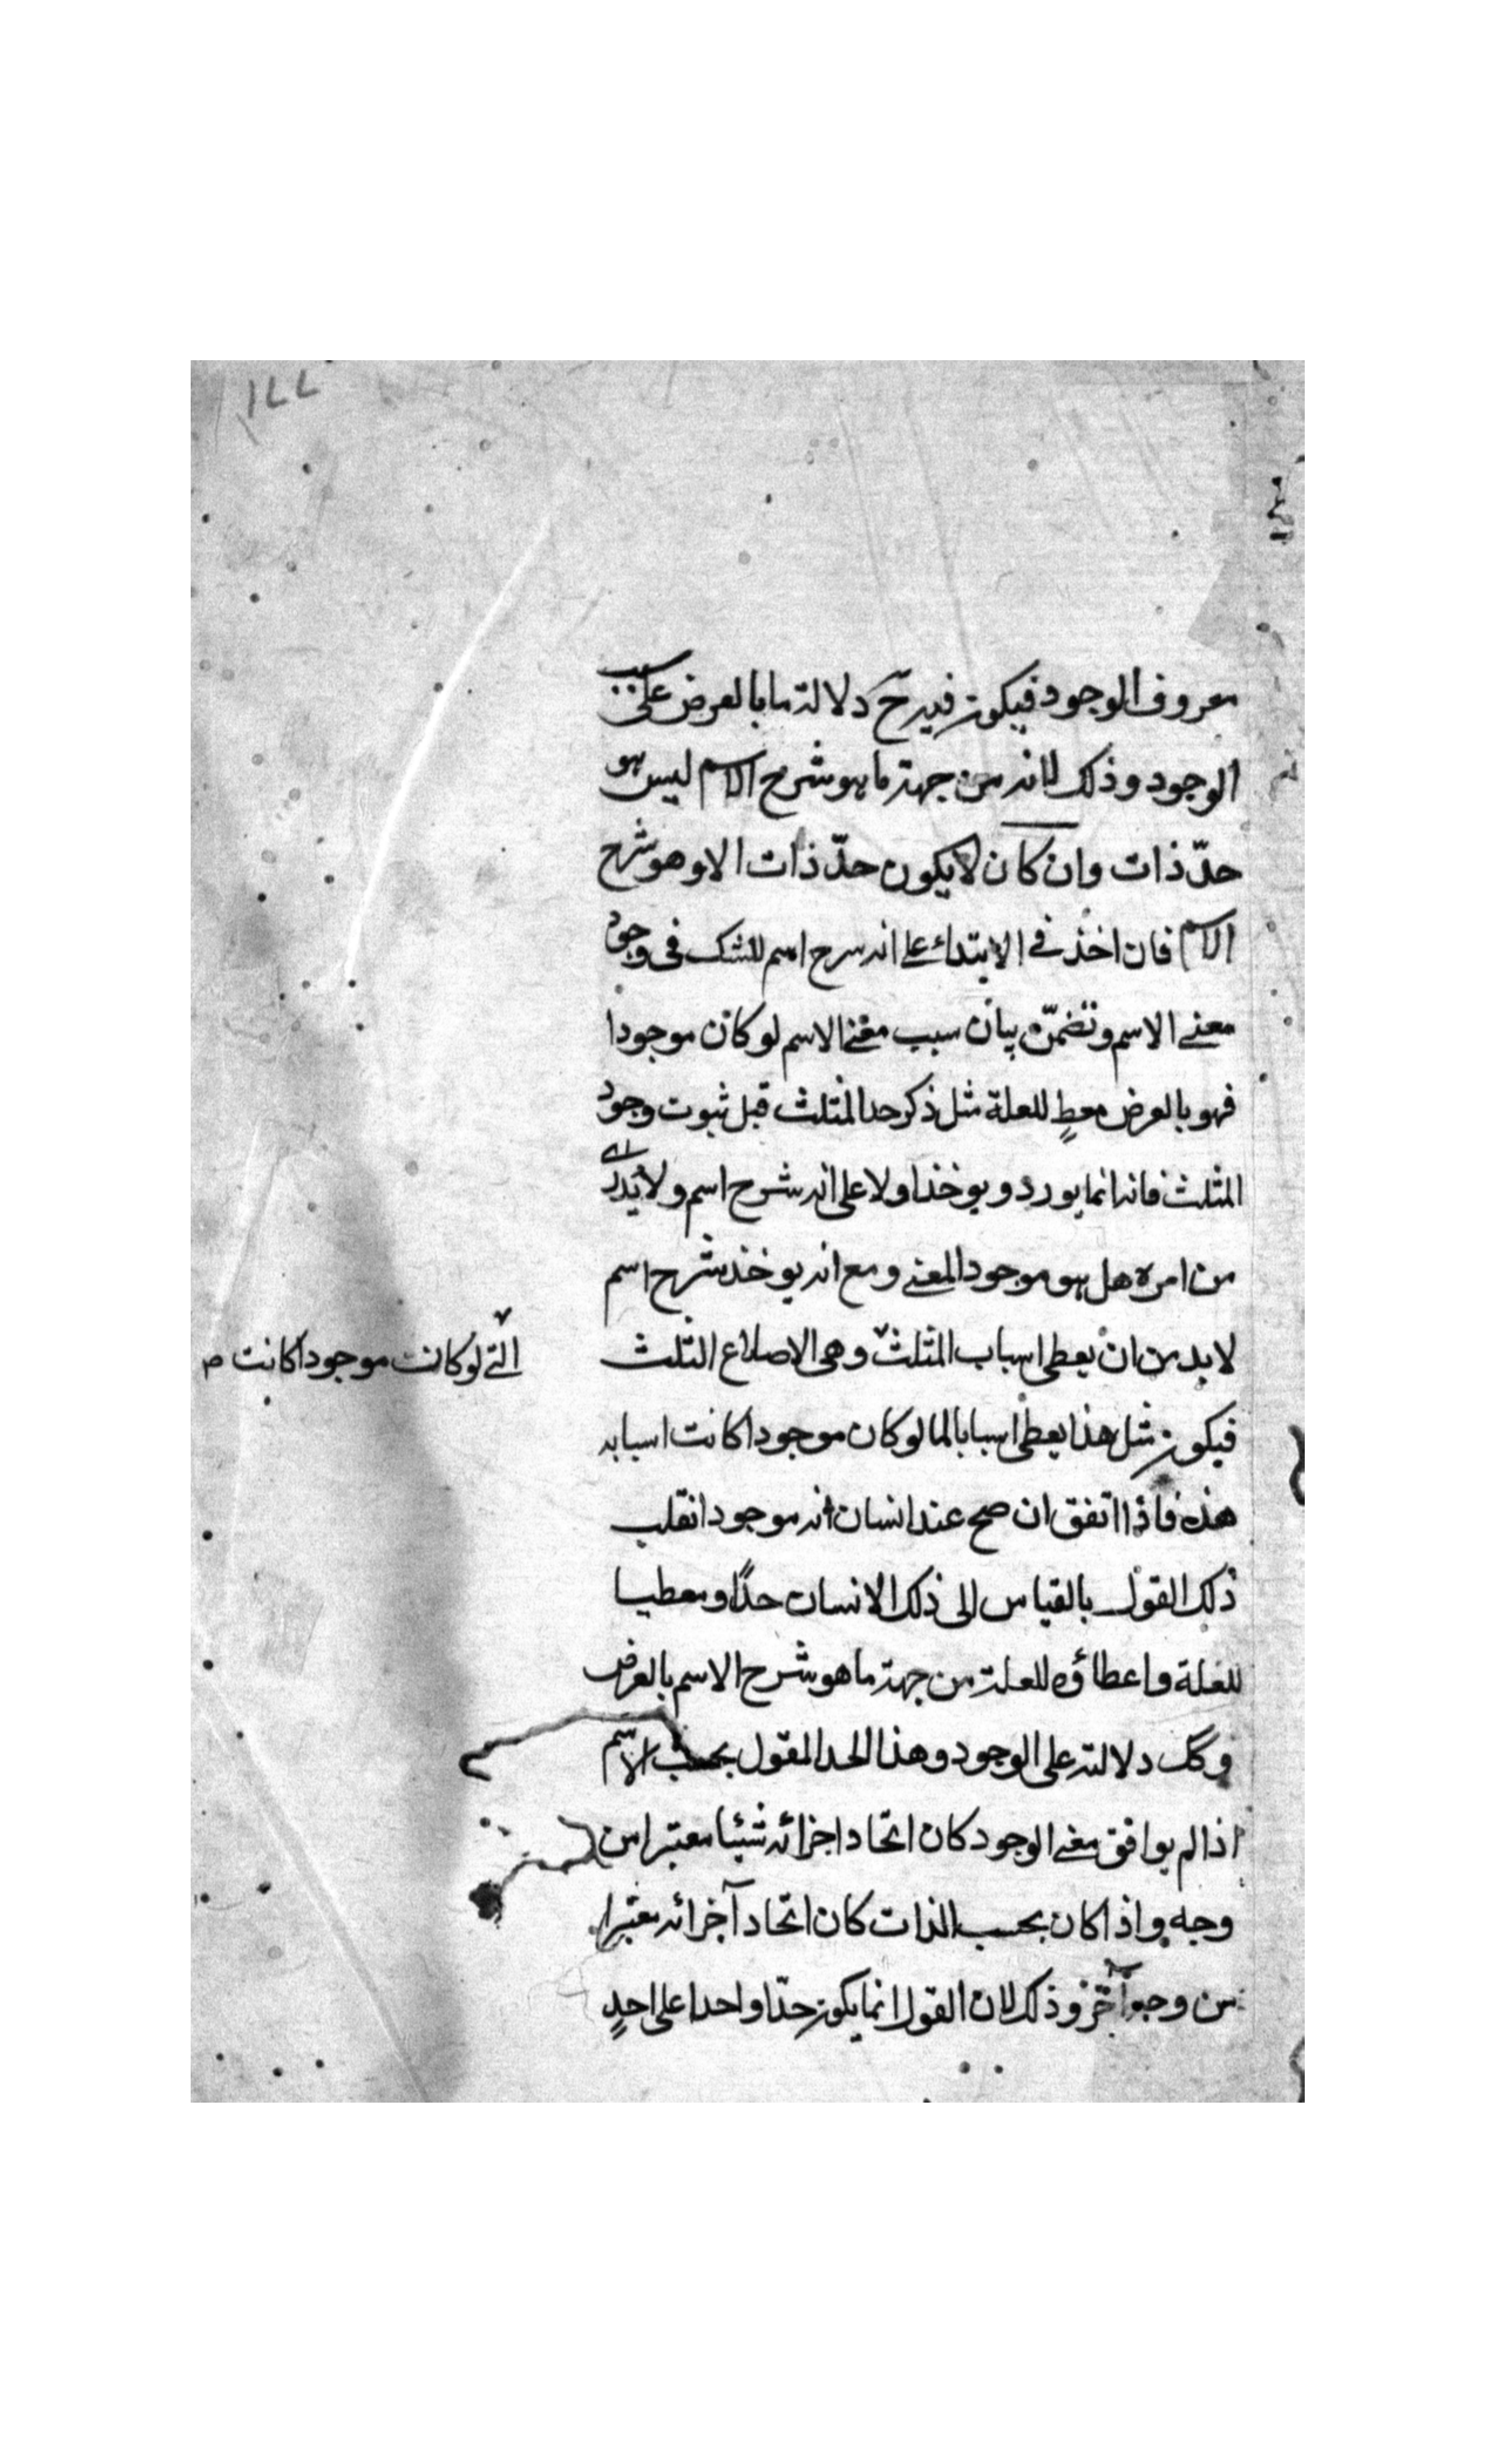 ١٤٤
معروف الوجود فيكون فيه ح دلالة ما بالعرض على سبب
الوجود وذلك لانه من جهة ما هو شرح الاسم ليس هو
حدّ ذات وان كان لا يكون حدّ ذات الا وهو شرح
الاسم فان اخذ في الابتداء على انه شرح اسم للشك في وجود
معنى الاسم وتضمّن بيان سبب معنى الاسم لو كان موجودا
فهو بالعرض معطٍ للعلة مثل ذكر حد المثلث قبل ثبوت وجود
المثلث فانه انما يورد ويوخذ اولا على انه شرح اسم ولا يدرى
من امره هل هو موجود المعنى ومع انه يوخذ شرح اسم
لا بد من ان يعطى اسباب المثلث وهى الاضلاع الثلث
التى لو كانت موجودا كانت ص
فيكون مثل هذا يعطى اسبابا لما لو كان موجودا كانت اسبابه
هذه فاذا اتفق ان صح عند انسان انه موجود انقلب
ذلك القول بالقياس الى ذلك الانسان حدًا ومعطيا
للعلة واعطاؤه للعلة من جهة ما هو شرح الاسم بالعرض
وكك دلالته على الوجود وهذا الحد المقول بحسب الاسم
اذا لم يوافق معنى الوجود كان اتحاد اجزائه شيئا معتبرا من
وجه واذا كان بحسب الذات كان اتحاد اجزائه معتبرا
من وجه آخر وذلك لان القول انما يكون حدّا واحدا على احدٍ